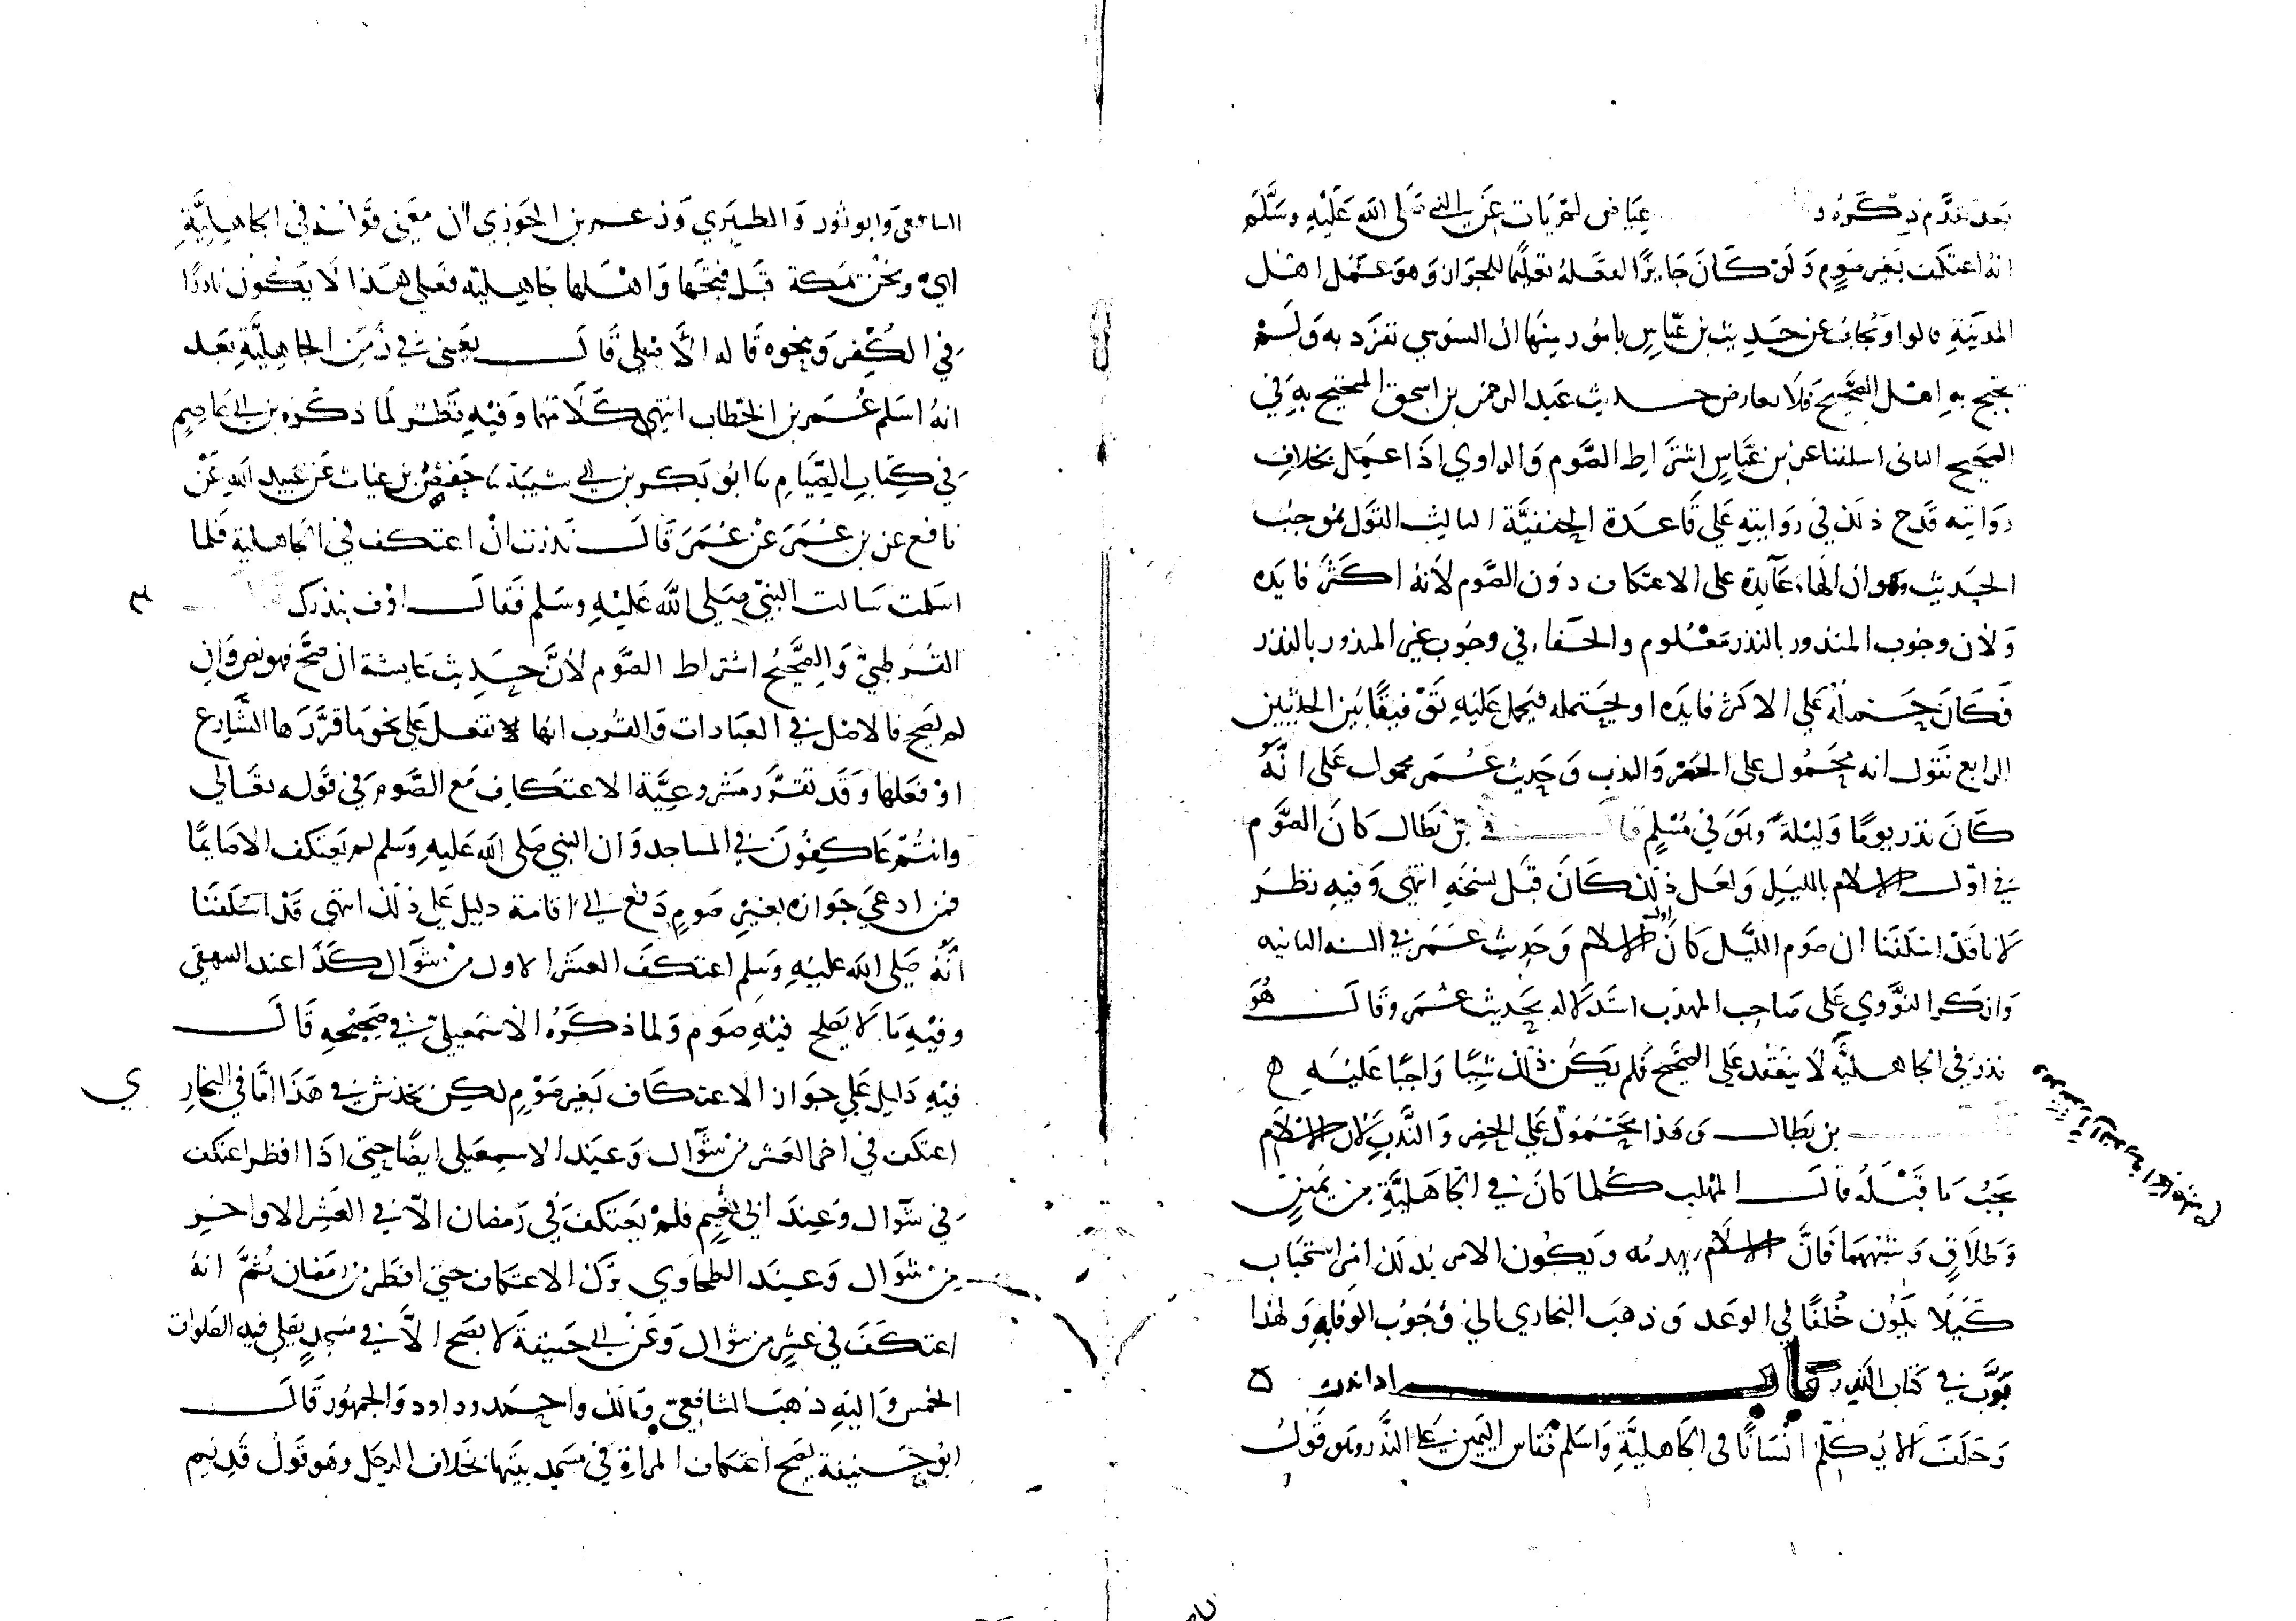 بعد تقدم ذكره عياض لم يات عن النبي صَلى الله عَليْهِ وسَلَّمَ
انه اعتكف بغير صوم وَلَو كَانَ جَايزًا لفعَله تعليمًا للجَوَاز وَهو عَمَل اهْل
المدينَةِ قالوا وَيجاب عن حَديث بن عَبّاسٍ بامُور مِنهَا ان السوسي تفرَّد به وَلَمْ
يحتج به اهْل الصَّحِيْح فلَا يعارض حـــديث عَبد الرحمن بن اسحق المحتج بهِ في
الصَحيح الثانى اسلفنا عن بن عَبَّاسٍ اشترَاط الصَّوم وَالراوي اذَا عمِل بخلافِ
رِوَايته قدَح ذلك في روَايتهِ عَلي قَاعدَة الحنفيَّة الثالث القَول بموجب
الحَديث وهو ان الهاء عَايدَة على الاعتكاف دوُن الصَّوم لأنهُ اكثرُ فايَده
وَلان وجُوب المنذور بالنذر مَعْلُوم والخفاء في وجُوب غير المنذور بالنذر
فكَانَ حَـــمله عَلي الاكثر فايَده او يحتمله فيحمل عَليهِ تَوْفيقًا بَيْن الحدَيثين
الرابع نقول انه محمُول على الحضِّ وَالندب وَحَديث عُـمَر محمول عَلى انَّهُ
كَانَ نذر يومًا وَليْلةً وهوَ في مُسْلِم قا بن بَطال كَانَ الصَّوْم
في اوّل الاسلام بالليَلِ وَلعَل ذَلك كَانَ قبْل نسْخهِ انتهى وَفيهِ نظَـر
لانا قدْ اسْلفنَا ان صَوم الليَّل كَانَ اول الاسلام وَحَديث عُمَر في السنه الثانيه
وَانكر النوَّوي عَلى صَاحب المهذب استدلاله بحَديث عُمَر وقَالَ هُوَ
نذرَ في الجاهليَّة لَا ينعَقد عَلي الصَّحيح فلم يكُن ذلك شيئًا وَاجبًا عَليْـهِ ه
بن بَطال وَهَذا محْمُول عَلي الحض وَالنَّدب لان الاسلام
يجبُ مَا قَبْلَهُ قَالَ المهلب كُلما كَانَ في الجاهَليَّةِ من يَمين
وَطلاقٍ وَشبْههَمَا فَانَّ الاسلام يهدمُه وَيكُون الامر بذلك امْر استحْبَاب
كَيلَا يكوُن خُلفًا في الوعَد وَذهَبَ البخاري الي وُجوُب الوفَا به وَلهذَا
بَوَّب في كتَاب النذر بَاب اذا نذر ه
وَحَلَف الا يُكلِّم انسَانًا في الجَاهليَّةِ وَاسَلم فقاس اليَمين عَلى النَّذر وهو قَولُ
الشافعي وَابو ثور وَالطبَرِي وَزعـم بن الجَوزي ان معَنى قَوله في الجاهِليَّةِ
ايْ ونحْن بمَكة قبَل فتحَها وَاهْلها جَاهليَة فعَلي هَذا لَا يَكُون نَاذرًا
في الكُفْر وَنحوه قَاله الأصَيلي قَالَ يَعني في زَمَن الجاهِليَّةِ بَعد
انهُ اسَلم عُمَر بن الخطاب انتهى كَلَامهمَا وَفيْهِ نَظـر لمَا ذكرَهُ بن ابي عَاصِمٍ
في كتَابِ الصّيَامِ ثنا ابُو بَكر بن ابي شيبَة ثنا حَفصُ بن غيَاث عَن عُبيد اللهِ عَنْ
نافع عن بن عُمَرَ عَنْ عُمَرَ قَالَ نَذرت انْ اعتكف في الجاهلية فلما
اسَلمت سَالت النبيّ صَلي اللَّه عَليْهِ وسَلم فقالَ اوْف بنذرك
القُرطبيّ وَالصَّحيْح اشتراط الصَّوم لأنَّ حَديث عَايشة ان صَحَّ فهو نص وَان
لم يصَح فالاصْل في العبَادات وَالقُرب انها لا تفعَل عَلي نحو مَا قرَّرَها الشَّارع
اوْ فعَلها وَقَد تقرَّر مَشرُوعيَّة الاعتكَاف مَع الصَّوم في قَوله تعَالى
وانتُمْ عَاكفُونَ في المساجد وَان النبي صَلى الله عَليهِ وَسَلم لم يَعتكف الا صَايمًا
فمن ادعَي جَوازه بغير صَوم دَفع الي اقامة دليل عَلي ذلك انتهى قَدْ اسَلفنَا
انَّهُ صَلى الله عَليْهِ وَسلم اعتكفَ العَشر الاول من شَوَّال كَذَا عند البيهقي
وفيْهِ مَا لا يَصلح فيْهِ صوَم وَلما ذكَرَهُ الاسْمعيليّ في صَحيْحهِ قَالَ
فيْهِ دَليل عَلي جَواز الاعتكَاف بغَير صَوْم لكن يخدش في هَذَا امَّا في البخار ي
اعتكف في اخر العَشر من شَوَّال وَعيند الاسمعيلى ايضًا حتى اذَا افطر اعتكف
في شَوّال وَعندَ ابي نعَيم فلمْ يَعتكف في رَمضان الاّ في العَشر الاواخـر
من شوَال وَعنَد الطحاوي ترَك الاعتكاف حتى افطر من رمَضان ثمَّ انهُ
اعتكَفَ في عشرٍ من شوَال وَعَنْ ابي حَنيفَة لا يصَح الاَّ في مَسجدٍ يصَلي فيهِ الصَلوات
الخمس وَاليهِ ذهَبَ الشافعيّ وَمَالك واحـمد وداود وَالجمهُور قَالَ
ابو حَـنيفة يصَح اعتكاف المراة في مسَجد بيَتها بخَلاف الرجَل وهَو قَولُ قَديْم